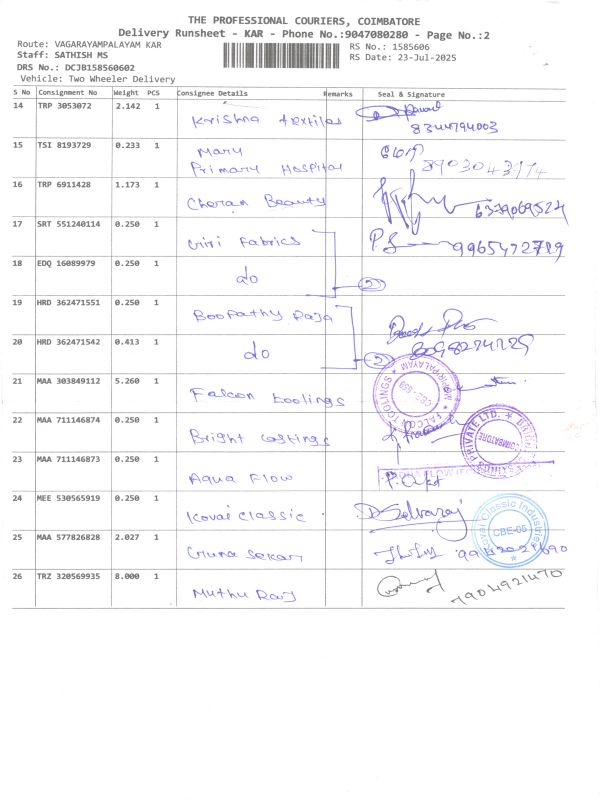 THE PROFESSIONAL COURIERS, COIMBATORE
Delivery Runsheet - KAR - Phone No.:9047080280 - Page No.:2
Route: VAGARAYAMPALAYAM KAR RS No.: 1585606
Staff: SATHISH MS RS Date: 23-Jul-2025
DRS No.: DCJB158560602
Vehicle: Two Wheeler Delivery
S No Consignment No Weight PCS Consignee Details Remarks Seal & Signature
14 TRP 3053072 2.142 1 Krishna textiles
8344794003
15 TSI 8193729 0.233 1 Mary
Primary Hospital 8903043174
16 TRP 6911428 1.173 1 Cheran Beauty 6379069524
17 SRT 551240114 0.250 1 Giri Fabrics P.S 9965472789
18 EDQ 16089979 0.250 1 do 2
19 HRD 362471551 0.250 1 Boopathy Raja
20 HRD 362471542 0.413 1 do 2
21 MAA 303849112 5.260 1 Falcon toolings FALCON TOOLINGS
22 MAA 711146874 0.250 1 Bright castings PRIVATE LTD. COIMBATORE
23 MAA 711146873 0.250 1 Aqua Flow
24 MEE 530565919 0.250 1 Kovai classic D. Selvaraj Kovai Classic Industries CBE-05
25 MAA 577826828 2.027 1 Guna Sekar
26 TRZ 320569935 8.000 1 Muthu Raj 7904921470